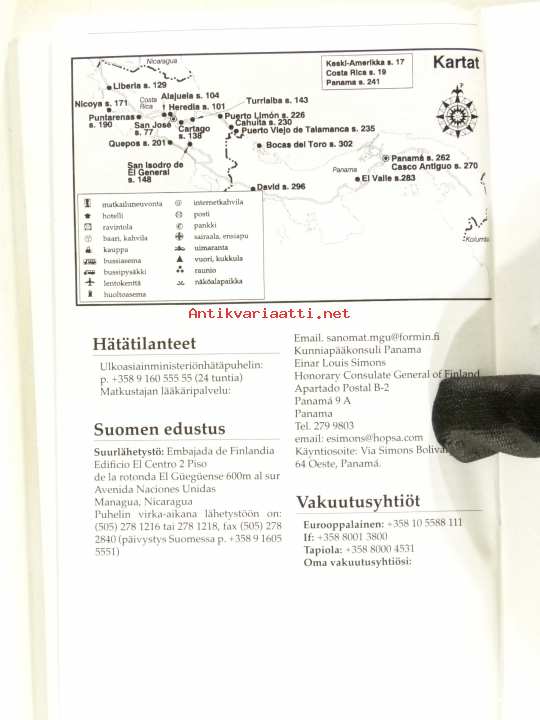 Kartat
Keski-Amerikka s. 17
Costa Rica s. 19
Panama s. 241
Nicaragua
Liberia s. 129
Alajuela s. 104
Turrialba s. 143
Nicoya s. 171
Costa Rica
Heredia s. 101
Puntarenas s. 190
Puerto Limón s. 226
San José s. 77
Cahuita s. 230
Cartago s. 138
Puerto Viejo de Talamanca s. 235
Quepos s. 201
Bocas del Toro s. 302
San Isodro de El General s. 148
Panama
Panamá s. 262
Casco Antiguo s. 270
El Valle s.283
David s. 296
matkailuneuvonta
hotelli
ravintola
baari, kahvila
kauppa
bussiasema
bussipysäkki
lentokenttä
huoltoasema
internetkahvila
posti
pankki
sairaala, ensiapu
uimaranta
vuori, kukkula
raunio
näköalapaikka
Antikvariaatti.net
Hätätilanteet
Ulkoasiainministeriönhätäpuhelin:
p. +358 9 160 555 55 (24 tuntia)
Matkustajan lääkäripalvelu:
Suomen edustus
Suurlähetystö: Embajada de Finlandia
Edificio El Centro 2 Piso
de la rotonda El Güegüense 600m al sur
Avenida Naciones Unidas
Managua, Nicaragua
Puhelin virka-aikana lähetystöön on:
(505) 278 1216 tai 278 1218, fax (505) 278
2840 (päivystys Suomessa p. +358 9 1605
5551)
Email. sanomat.mgu@formin.fi
Kunniapääkonsuli Panama
Einar Louis Simons
Honorary Consulate General of Finland
Apartado Postal B-2
Panamá 9 A
Panama
Tel. 279 9803
email: esimons@hopsa.com
Käyntiosoite: Via Simons
64 Oeste, Panamá.
Vakuutusyhtiöt
Eurooppalainen: +358 10 5588 111
If: +358 8001 3800
Tapiola: +358 8000 4531
Oma vakuutusyhtiösi: